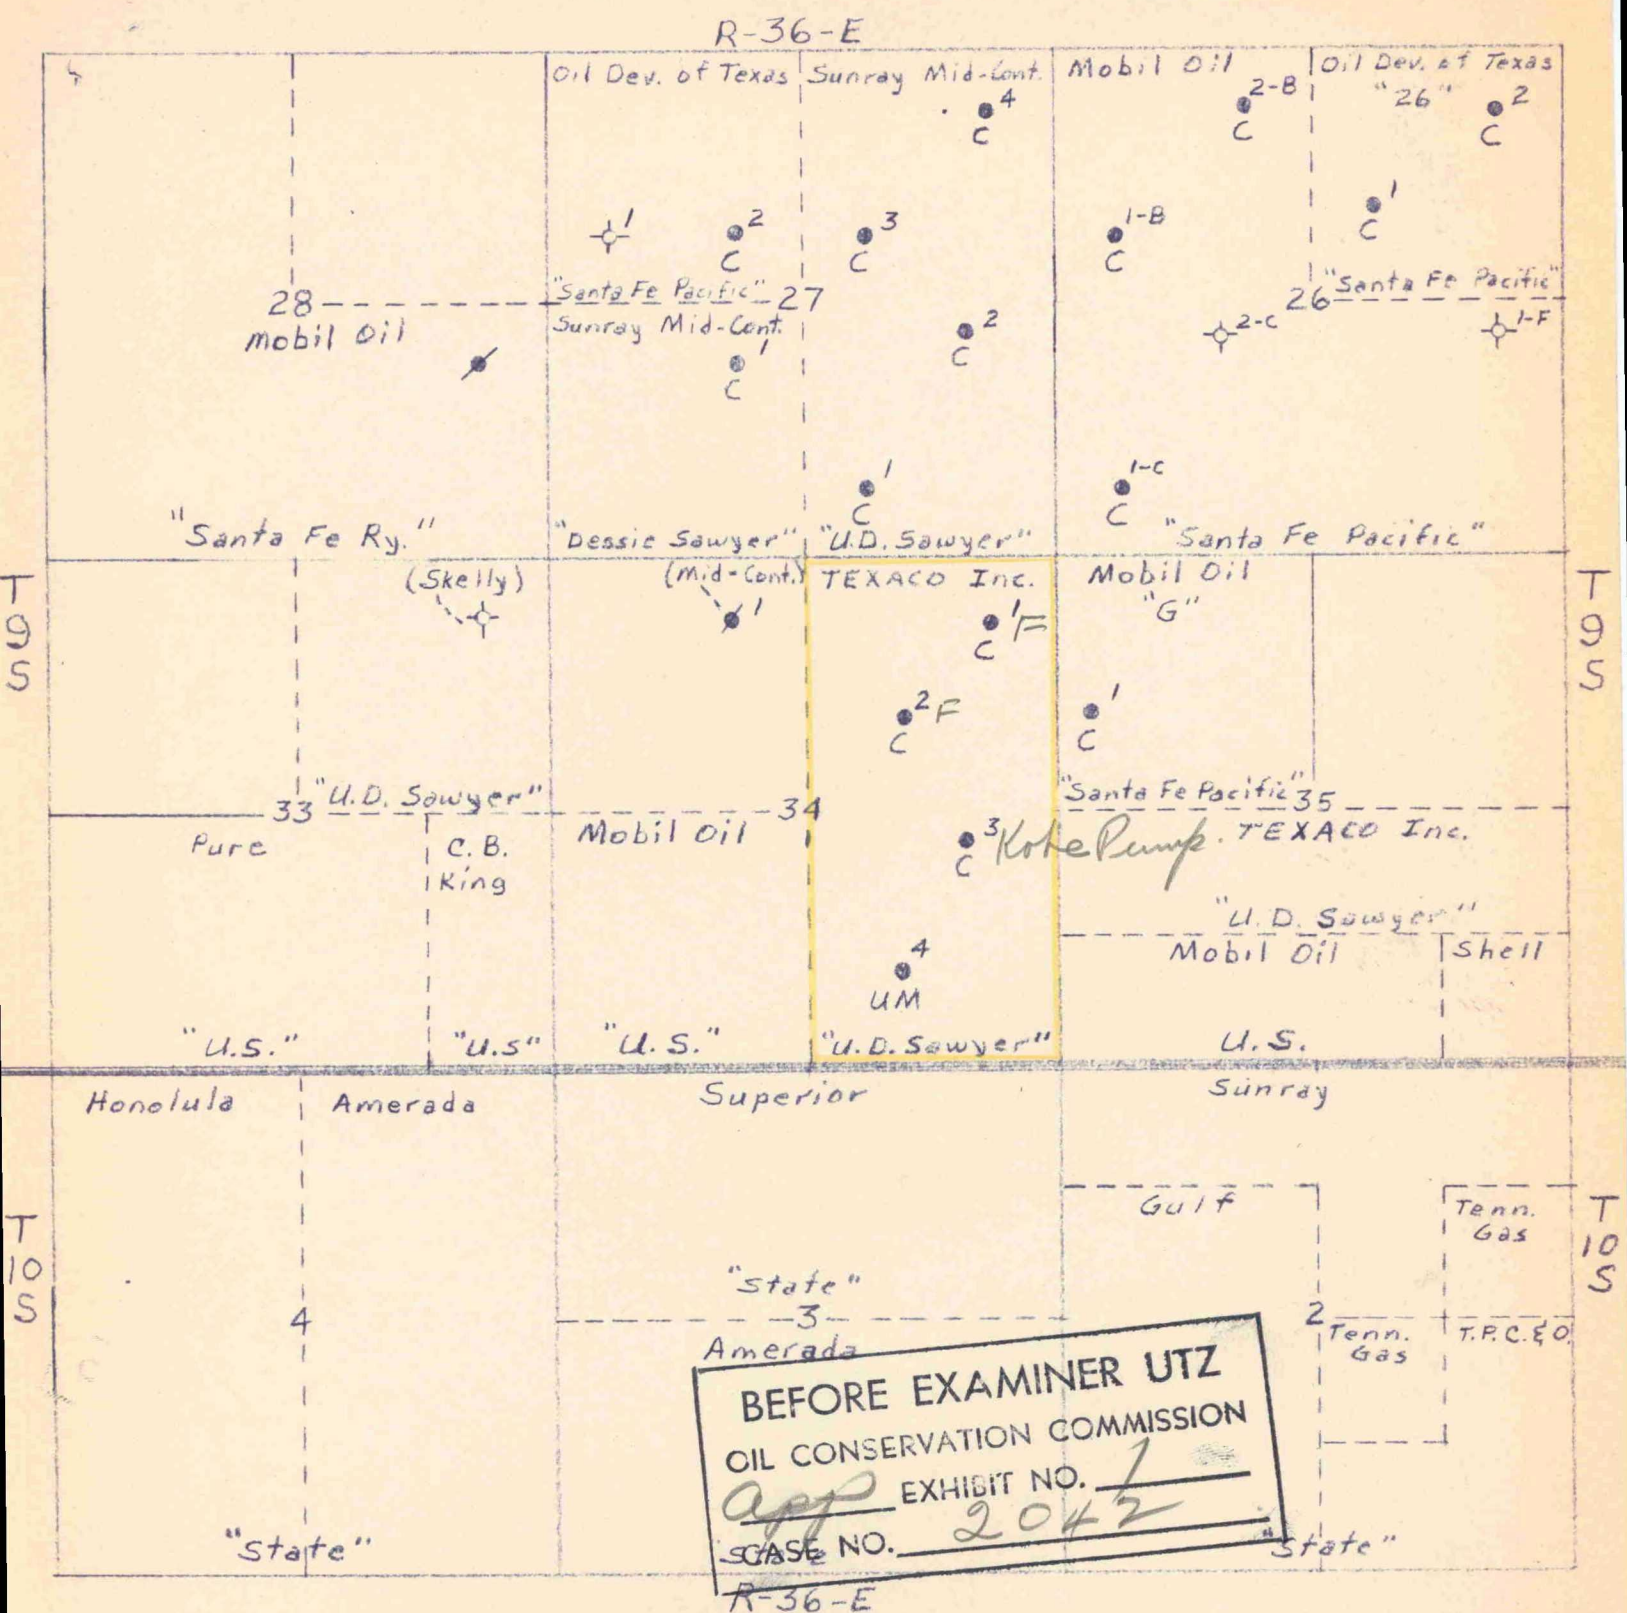 R-36-E
Oil Dev. of Texas
Sunray Mid-Cont.
Mobil Oil
Oil Dev. of Texas
"26"
4
C
2-B
C
2
C
1
C
1
2
C
3
C
1-B
C
28
Mobil Oil
"Santa Fe Pacific"
27
Sunray Mid-Cont.
1
C
2
C
26
"Santa Fe Pacific"
2-C
1-F
1
C
1-C
C
"Santa Fe Ry."
"Dessie Sawyer"
"U.D. Sawyer"
"Santa Fe Pacific"
T
9
S
(Skelly)
(Mid-Cont.)
1
TEXACO Inc.
1 F
C
2 F
C
Mobil Oil
"G"
1
C
T
9
S
33
"U.D. Sawyer"
34
"Santa Fe Pacific"
35
Pure
C. B.
King
Mobil Oil
3 Kobe Pump.
C
TEXACO Inc.
"U. D. Sawyer"
Mobil Oil
Shell
4
UM
"U.S."
"U.S"
"U.S."
"U.D. Sawyer"
U.S.
Honolula
Amerada
Superior
Sunray
Gulf
Tenn.
Gas
T
10
S
T
10
S
"State"
4
3
2
Amerada
Tenn.
Gas
T.P.C.&O.
BEFORE EXAMINER UTZ
OIL CONSERVATION COMMISSION
app EXHIBIT NO. 1
CASE NO. 2042
"State"
State
"State"
R-36-E